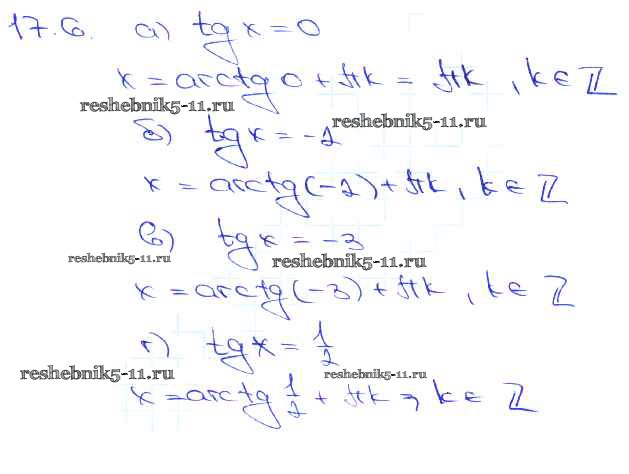 17.6. а) tg x = 0
x = arctg 0 + πk = πk , k ∈ ℤ
reshebnik5-11.ru
reshebnik5-11.ru
б) tg x = -2
x = arctg(-2) + πk , k ∈ ℤ
в) tg x = -3
reshebnik5-11.ru
reshebnik5-11.ru
x = arctg(-3) + πk , k ∈ ℤ
г) tg x = 1/2
reshebnik5-11.ru
reshebnik5-11.ru
x = arctg 1/2 + πk , k ∈ ℤ